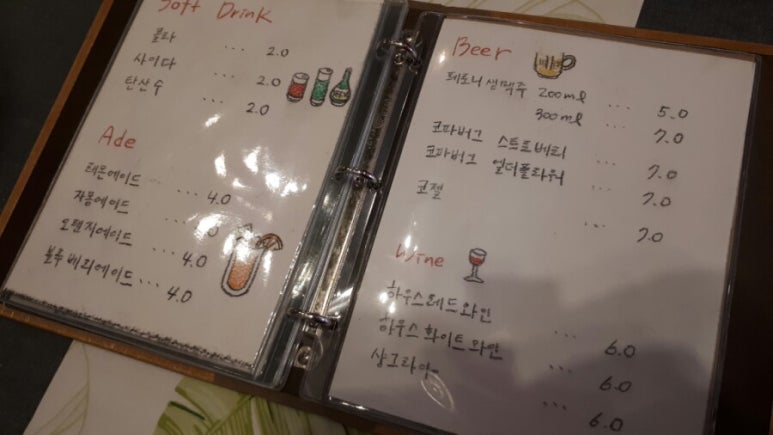 Soft Drink
콜라 ... 2.0
사이다 ... 2.0
탄산수 ... 2.0
Ade
레몬에이드 .... 4.0
자몽에이드 ....
오렌지에이드 ... 4.0
블루베리에이드 ... 4.0
Beer
페로니 생맥주 200ml ... 5.0
300ml ... 7.0
코파버그 스트로베리 ... 7.0
코파버그 엘더플라워 ... 7.0
코젤 ... 7.0
Wine
하우스 레드 와인 ... 6.0
하우스 화이트 와인 ... 6.0
샹그리아 ... 6.0